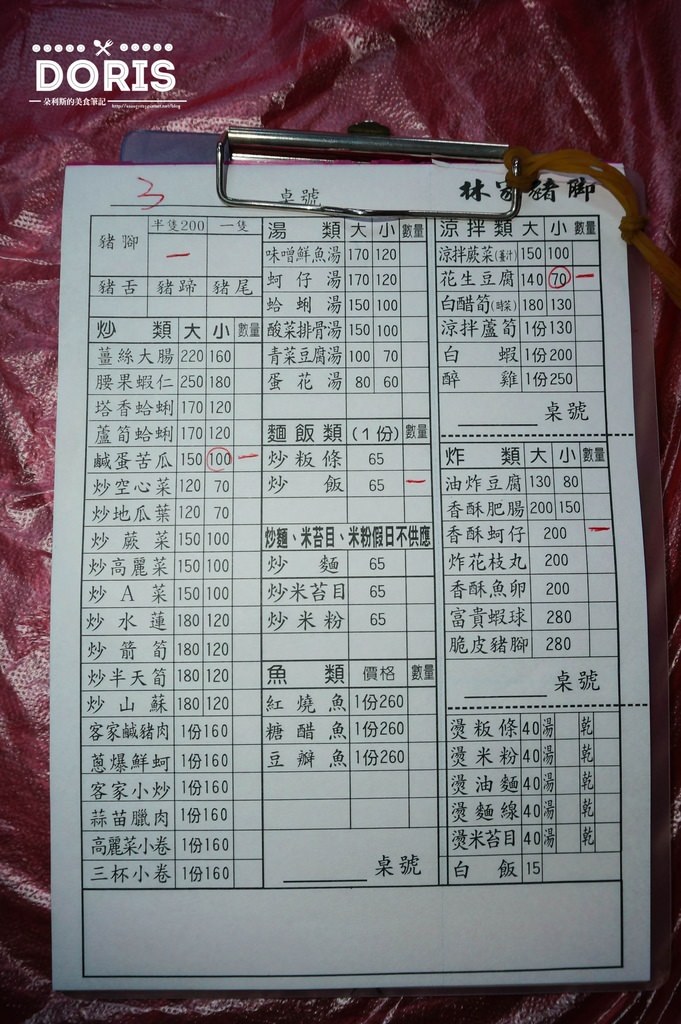 DORIS
朵利斯的美食筆記
3 桌號 林家豬腳
豬腳 半隻200 一隻
一
豬舌 豬蹄 豬尾
炒類 大 小 數量
薑絲大腸 220 160
腰果蝦仁 250 180
塔香蛤蜊 170 120
蘆筍蛤蜊 170 120
鹹蛋苦瓜 150 100 一
炒空心菜 120 70
炒地瓜葉 120 70
炒蕨菜 150 100
炒高麗菜 150 100
炒A菜 150 100
炒水蓮 180 120
炒箭筍 180 120
炒半天筍 180 120
炒山蘇 180 120
客家鹹豬肉 1份160
蔥爆鮮蚵 1份160
客家小炒 1份160
蒜苗臘肉 1份160
高麗菜小卷 1份160
三杯小卷 1份160
湯類 大 小 數量
味噌鮮魚湯 170 120
蚵仔湯 170 120
蛤蜊湯 150 100
酸菜排骨湯 150 100
青菜豆腐湯 100 70
蛋花湯 80 60
麵飯類 (1份) 數量
炒粄條 65
炒飯 65 一
炒麵、米苔目、米粉假日不供應
炒麵 65
炒米苔目 65
炒米粉 65
魚類 價格 數量
紅燒魚 1份260
糖醋魚 1份260
豆瓣魚 1份260
桌號
涼拌類 大 小 數量
涼拌蕨菜(薑汁) 150 100
花生豆腐 140 70 一
白醋筍(時菜) 180 130
涼拌蘆筍 1份130
白蝦 1份200
醉雞 1份250
桌號
炸類 大 小 數量
油炸豆腐 130 80
香酥肥腸 200 150
香酥蚵仔 200 一
炸花枝丸 200
香酥魚卵 200
富貴蝦球 280
脆皮豬腳 280
桌號
燙粄條 40 湯 乾
燙米粉 40 湯 乾
燙油麵 40 湯 乾
燙麵線 40 湯 乾
燙米苔目 40 湯 乾
白飯 15